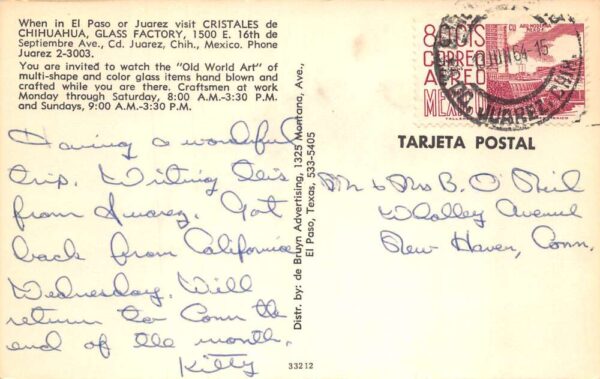 When in El Paso or Juarez visit CRISTALES de
CHIHUAHUA, GLASS FACTORY, 1500 E. 16th de
Septiembre Ave., Cd. Juarez, Chih., Mexico. Phone
Juarez 2-3003.
You are invited to watch the "Old World Art" of
multi-shape and color glass items hand blown and
crafted while you are there. Craftsmen at work
Monday through Saturday, 8:00 A.M.-3:30 P.M.
and Sundays, 9:00 A.M.-3:30 P.M.
Having a wonderful
trip. Writing this
from Juarez. Got
back from California
Wednesday. Will
return to Conn the
end of the month.
Kitty
Distr. by: de Bruyn Advertising, 1325 Montana, Ave.,
El Paso, Texas, 533-5405
33212
80 CTS
CORREO
AEREO
MEXICO
ARQ. MODERNA
JUN 64 - 15
JUAREZ, CHIH.
TARJETA POSTAL
Mr & Mrs B. O'Neil
Whalley Avenue
New Haven, Conn.